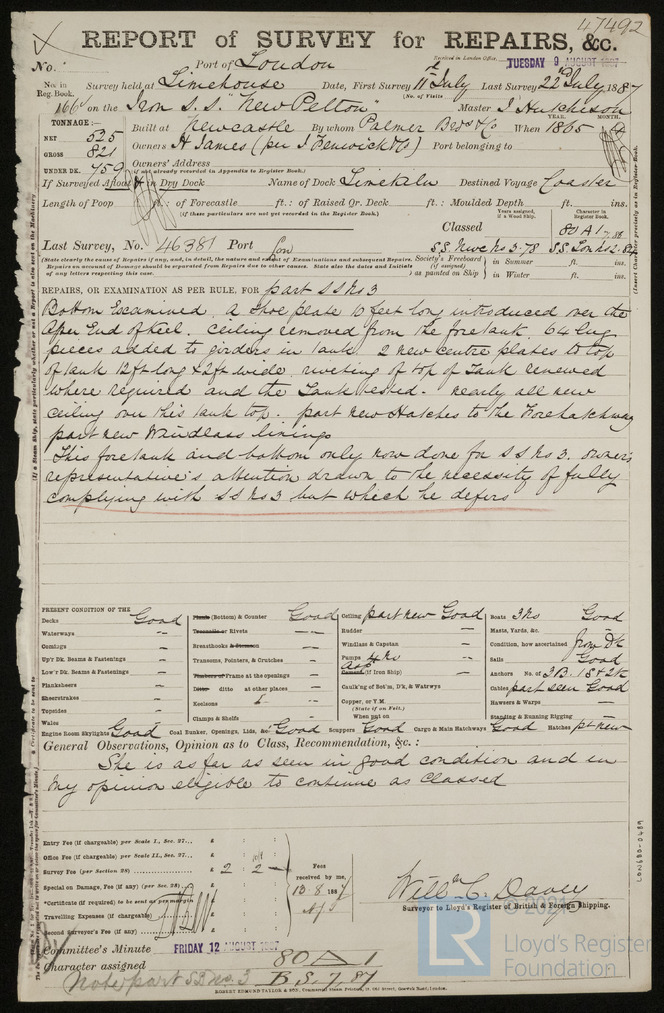 47492
REPORT of SURVEY for REPAIRS, &c.
No. Port of London Received in London Office, TUESDAY 9 AUGUST 1887
No. in Reg. Book. Survey held at Limehouse Date, First Survey 11th July Last Survey 22nd July 1887
(No. of Visits
166 on the Iron S.S. "New Pelton" Master J Hutchison
TONNAGE:— YEAR. MONTH.
NET 525 Built at Newcastle By whom Palmer Bros & Co When 1865
GROSS 821 Owners H James (per J Fenwick & Co) Port belonging to
UNDER DK. 759 Owners' Address
(if not already recorded in Appendix to Register Book.)
If Surveyed Afloat or in Dry Dock Name of Dock Limekiln Destined Voyage Coaster
Length of Poop ft.: of Forecastle ft.: of Raised Qr. Deck ft.: Moulded Depth ft. ins.
(if these particulars are not yet recorded in the Register Book.)
Years assigned, if a Wood Ship. Character in Register Book.
Classed 80 A1
Last Survey, No. 46381 Port Lon SS Nwc No 3-78 SS Lon No 2-82
(State clearly the cause of Repairs if any, and, in detail, the nature and extent of Examinations and subsequent Repairs.
Repairs on account of Damage should be separated from Repairs due to other causes. State also the dates and initials
of any letters respecting this case.)
Society's Freeboard (if assigned) as painted on Ship in Summer ft. ins.
in Winter ft. ins.
REPAIRS, OR EXAMINATION AS PER RULE, FOR part SS No 3
Bottom Examined, a shoe plate 10 feet long introduced over the
after End of Keel. ceiling removed from the foretank 64 lug
pieces added to girders in tank 2 new centre plates to top
of tank 12ft long & 2ft wide, riveting of top of Tank renewed
where required and the Tank tested. nearly all new
ceiling over this tank top. part new Hatches to the Forehatchway
part new Windlass linings
This foretank and bottom only now done for SS No 3. owner's
representative's attention drawn to the necessity of fully
complying with SS No 3 but which he defers
PRESENT CONDITION OF THE
Decks Good
Waterways "
Comings "
Up'r Dk. Beams & Fastenings "
Low'r Dk. Beams & Fastenings "
Planksheers "
Sheerstrakes "
Topsides "
Wales
Plank (Bottom) & Counter Good
Treenails or Rivets "
Breasthooks & Stemson "
Transoms, Pointers, & Crutches "
Timbers of Frame at the openings "
Ditto ditto at other places "
Keelsons "
Clamps & Shelfs "
Ceiling part new Good
Rudder "
Windlass & Capstan "
Pumps 4 No "
Cement (if Iron Ship) "
Caulk'ng of Bot'm, D'k, & Watrwys
Copper, or Y.M.
(State if on Felt.)
When put on
Boats 3 No Good
Masts, Yards, &c. "
Condition, how ascertained from Dk
Sails Good
Anchors No. of 3B. 1S & 2K
Cables part seen Good
Hawsers & Warps "
Standing & Running Rigging "
Engine Room Skylights Good Coal Bunker, Openings, Lids, &c. Good Scuppers Good Cargo & Main Hatchways Good Hatches pt new
General Observations, Opinion as to Class, Recommendation, &c.:
She is as far as seen in good condition and in
my opinion eligible to continue as Classed
Entry Fee (if chargeable) per Scale I., Sec. 27... £
Office Fee (if chargeable) per Scale II., Sec. 27... £
Survey Fee (per Section 28) £ 2 2 —
Special on Damage, Fee (if any) (per Sec. 28) £
*Certificate (if required) to be sent as per margin
Travelling Expenses (if chargeable) £
Second Surveyor's Fee (if any) £
Fees received by me,
13.8 1887
Willm C. Davey
Surveyor to Lloyd's Register of British & Foreign Shipping.
Committee's Minute FRIDAY 12 AUGUST 1887
Character assigned 80 A 1
B.S. 7.87
Note part SS No. 3
ROBERT EDMUND TAYLOR & SON, Commercial Steam Printers, 19, Old Street, Goswell Road, London.
LON680-0489
© 2021
LR
Lloyd's Register
Foundation